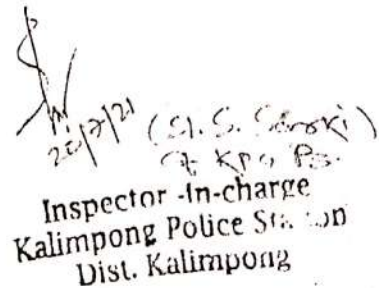 20/7/21 (SI. S. )
of KPG P.S.
Inspector -In-charge
Kalimpong Police
Dist. Kalimpong